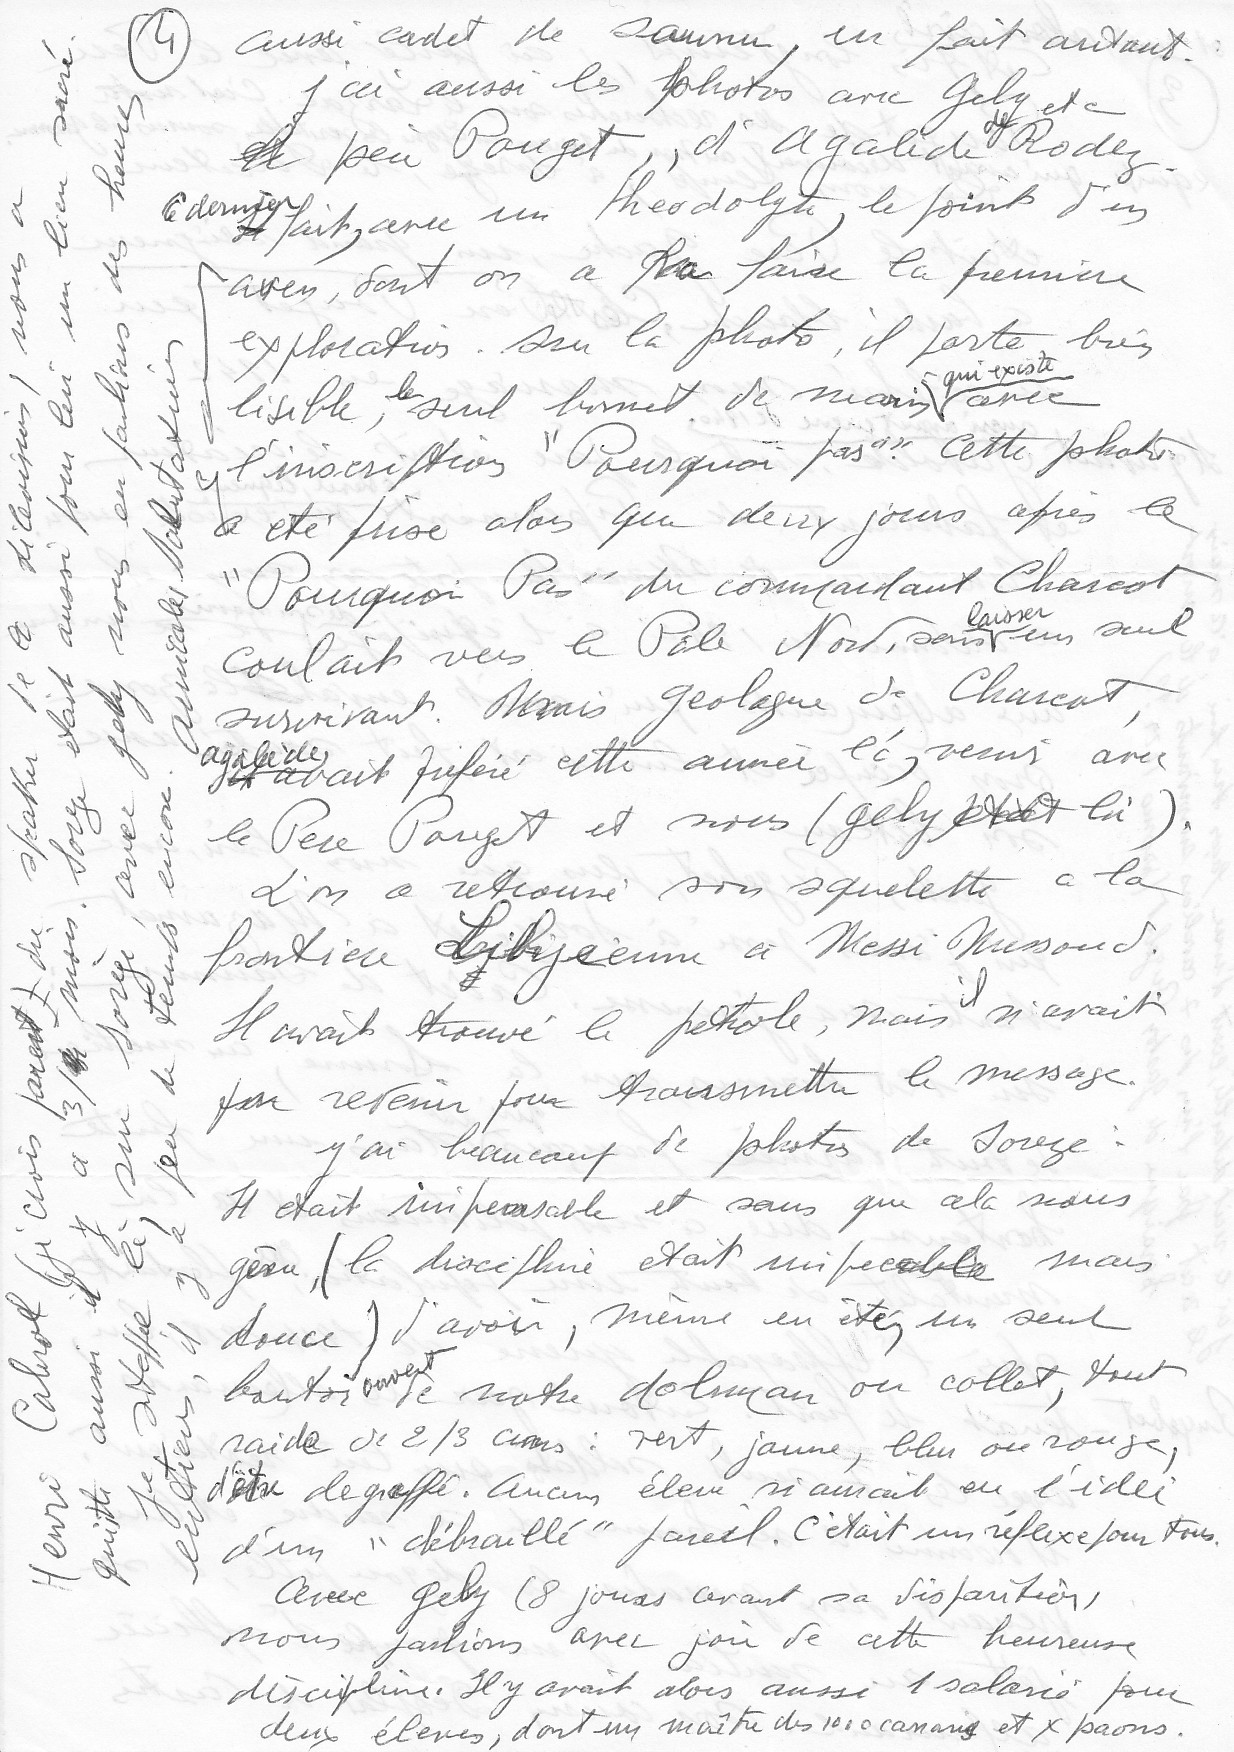 4
aussi cadet de Saumur, en fait autant.
j'ai aussi les photos avec Gely et
père Pouget, d'Agalède de Rodez.
Ce dernier fait, avec un theodolyte, le point d'un
aven, dont on a pu faire la première
exploration. Sur la photo, il porte bien
lisible, le seul bonnet de marin qui existe avec
l'inscription "Pourquoi pas". Cette photo
a été prise alors que deux jours après le
"Pourquoi Pas" du commandant Charcot
coulait vers le Pôle Nord, sans laisser un seul
survivant. Mais geologue de Charcot,
agalède avait préféré cette année là, venir avec
le Pere Pouget et nous (gely était là).
L'on a retrouvé son squelette a la
frontiere Libyenne a Messi Messaoud.
Il avait trouvé le petrole, mais il n'avait
pu revenir pour transmettre le message.
j'ai beaucoup de photos de Soreze :
Il etait impensable et sans que cela nous
gène, (la discipline etait impecable mais
douce) d'avoir, même en été, un seul
bouton ouvert de notre dolman ou collet, tout
raide de 2/3 cms : vert, jaune, bleu ou rouge,
d'être degraffé. Aucun élève n'aurait eu l'idée
d'un "débraillé" pareil. C'était un réflexe pour tous.
Avec Gely (8 jours avant sa disparition)
nous parlions avec joie de cette heureuse
discipline. Il y avait alors aussi 1 salarié pour
deux élèves, dont un maître des 1000 canaris et x paons.
Henri Cabrol (je crois parent du speaker de la télévision) nous a
quitté aussi il y a 3/4 mois. Sorèze était aussi pour lui un lieu sacré.
Je m'arrête là, sur Sorèze, avec gelly nous en parlions des heures
entières, il y a peu de temps encore. Amicales Salutations